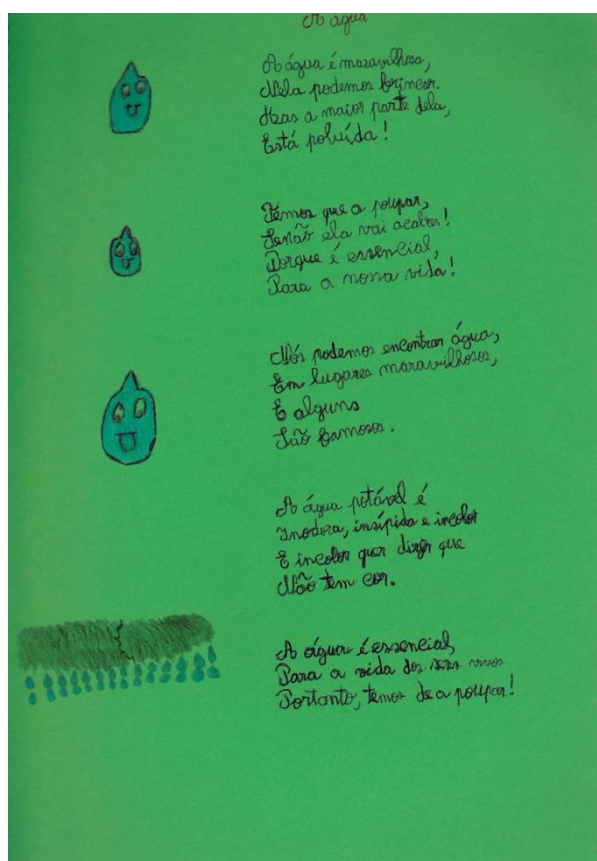 A água
A água é maravilhosa,
Nela podemos brincar.
Mas a maior parte dela,
Está poluída!
Temos que a poupar,
Senão ela vai acabar!
Porque é essencial,
Para a nossa vida!
Nós podemos encontrar água,
Em lugares maravilhosos,
E alguns
São famosos.
A água potável é
Inodora, insípida e incolor
E incolor quer dizer que
Não tem cor.
A água é essencial,
Para a vida dos seres vivos
Portanto, temos de a poupar!